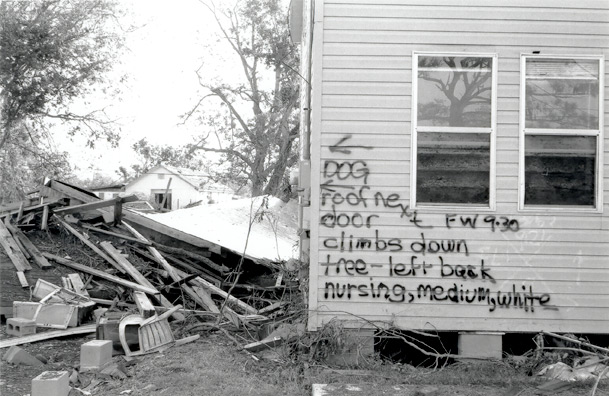 ←
DOG
←
roof next
door F W 9.30
climbs down
tree - left back
nursing, medium, white